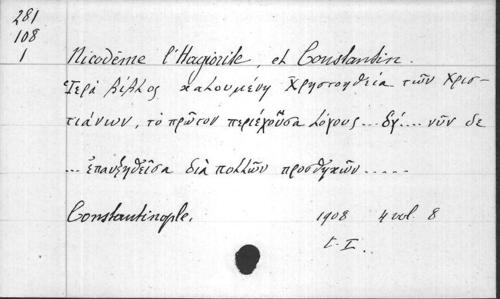 281
108
1
Nicodème l'Hagiorite, et Constantin.
Ἱερὰ Δέλτος καλουμένη Χρηστοηθεία τῶν Χρισ-
τιάνων, τὸ πρῶτον περιέχουσα λόγους... ιγʹ.... νῦν δε
... ἐπαυξηθεῖσα διὰ πολλῶν προσθηκῶν.....
Constantinople. 1908 4 vol. 8
t. I..